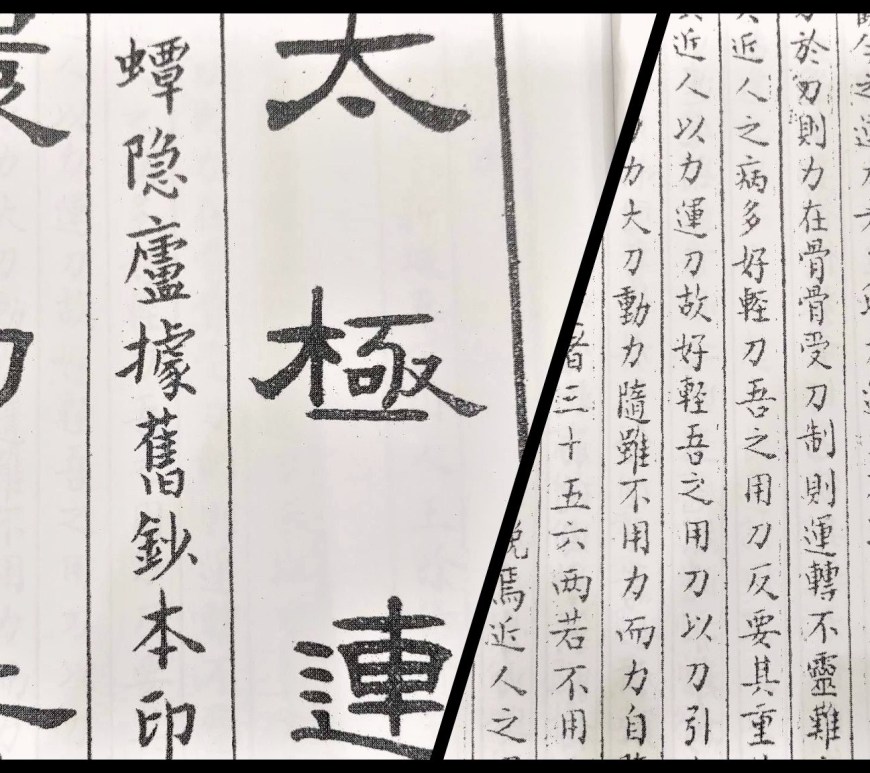 於刃則力在骨骨受刀制則運轉不靈難
近人之病多好輕刀吾之用刀反要其重
近人以力運刀故好輕吾之用刀以刀引
力大刀動力隨雖不用力而力自
三十五六兩若不用
焉近人之
太極連
蟫隐廬據舊鈔本印